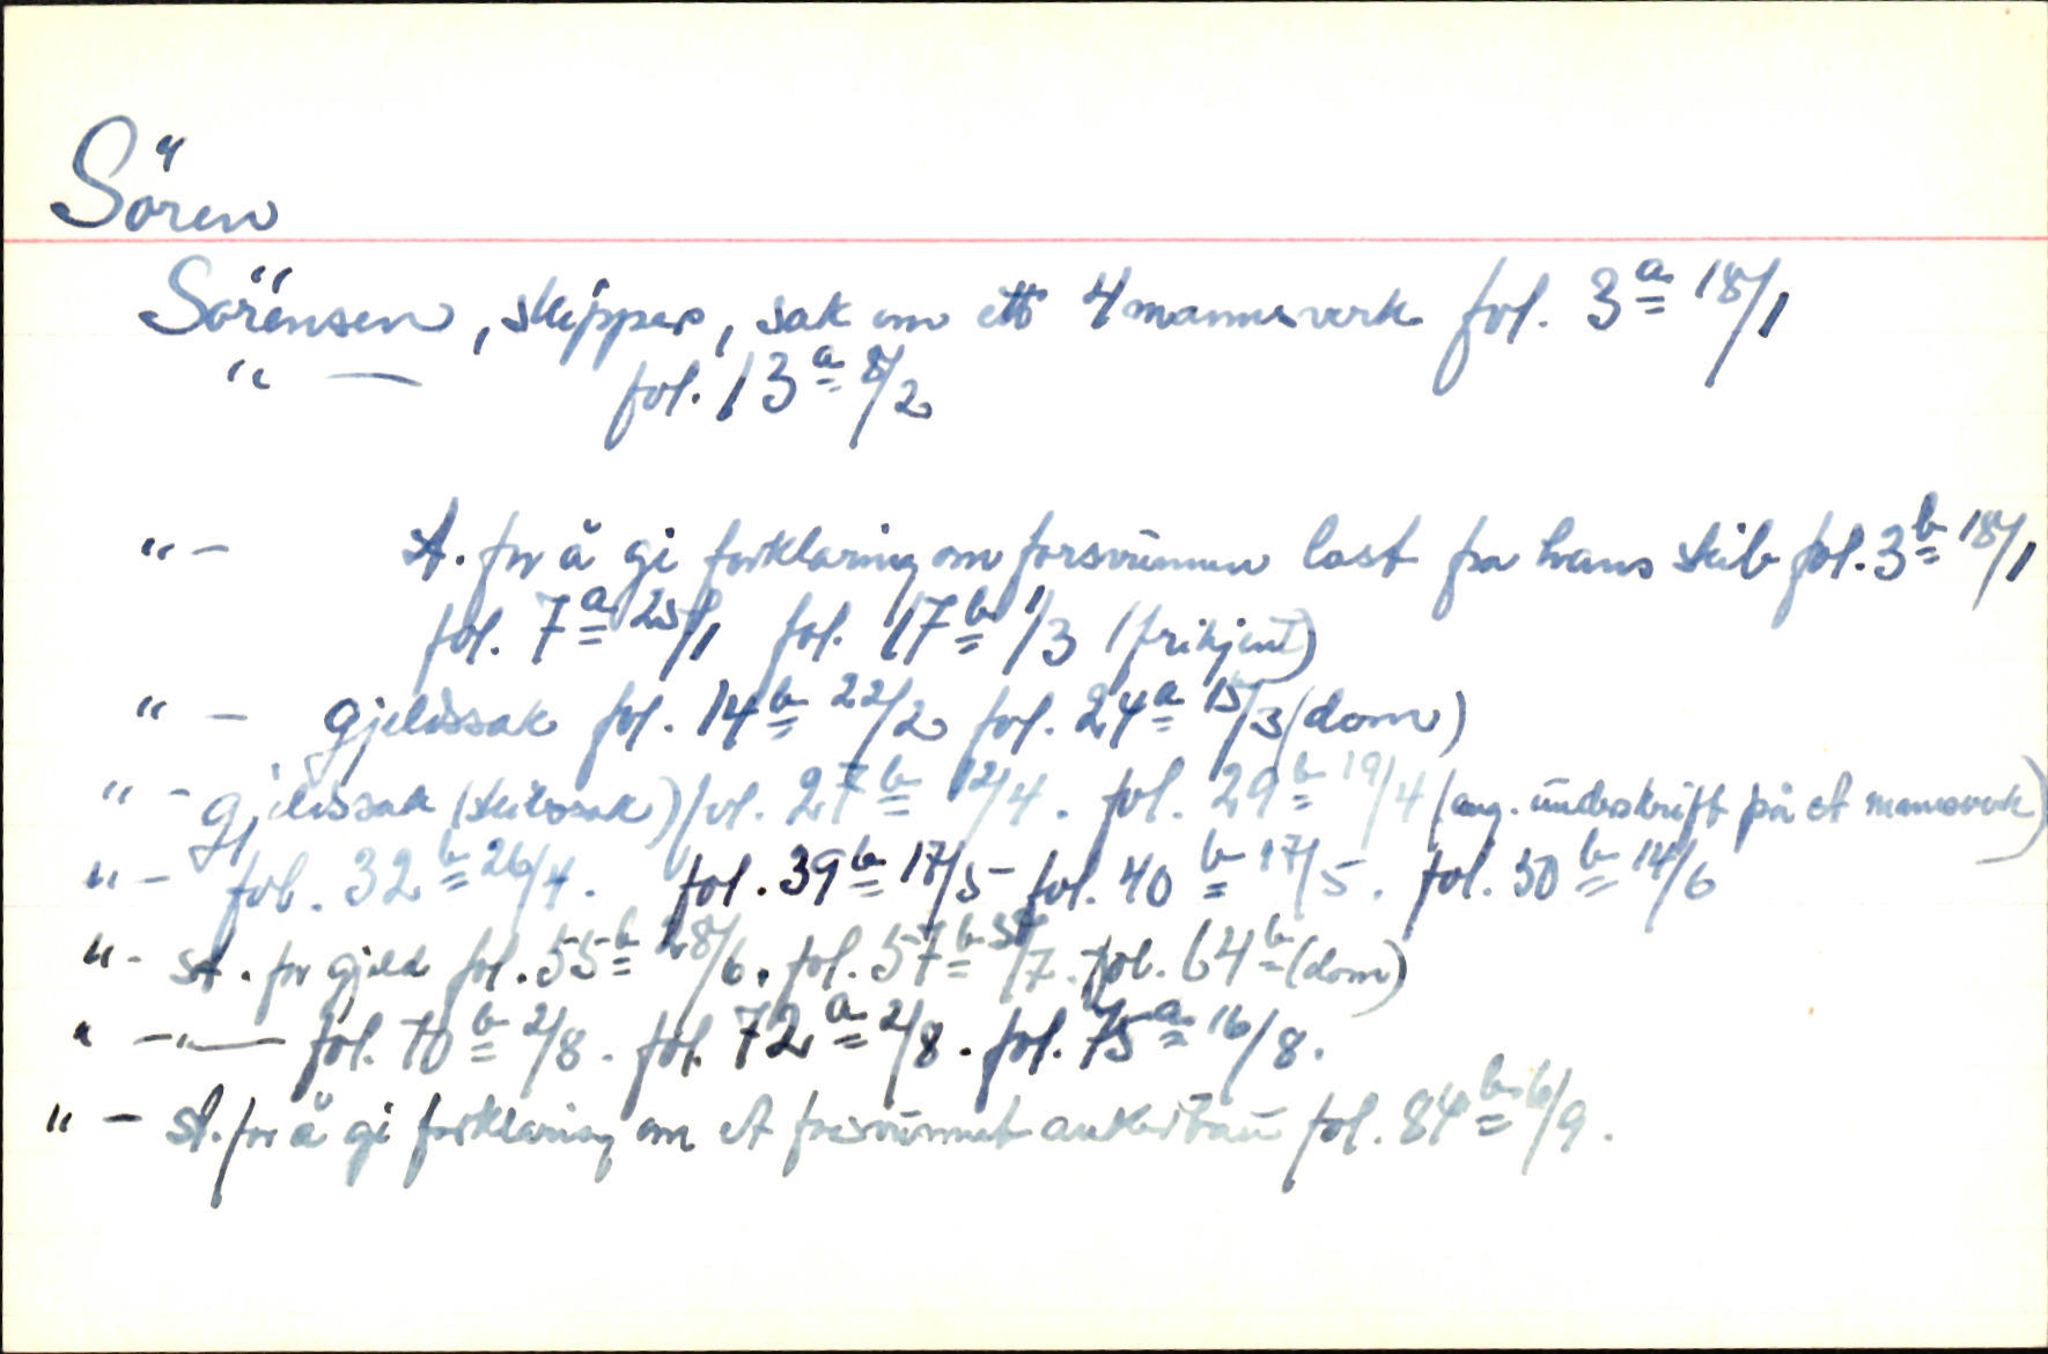 Sören
Sörensen, skipper, sak om ett 4 mannsverk fol. 3a 18/1
" — fol. 13a 8/2
" - st. for å gi forklaring om forsvunnen last fra hans skib fol. 3b 18/1
fol. 7a 25/1 fol. 17b 1/3 (frikjent)
" - gjeldssak fol. 14b 22/2 fol. 24a 15/3 (dom)
" - gjeldssak (skibssak) fol. 27b 12/4. fol. 29b 19/4 (ang. underskrift på et mannsverk)
" - fol. 32b 26/4. fol. 39b 17/5 fol. 40b 17/5. fol. 50b 14/6
" - st. for gjeld fol. 55b 28/6. fol. 57b /7. fol. 64b (dom)
" —"— fol. 70b 2/8. fol. 72a 2/8. fol. 75a 16/8.
" - st. for å gi forklaring om et forsvunnet ankertau fol. 84b 6/9.